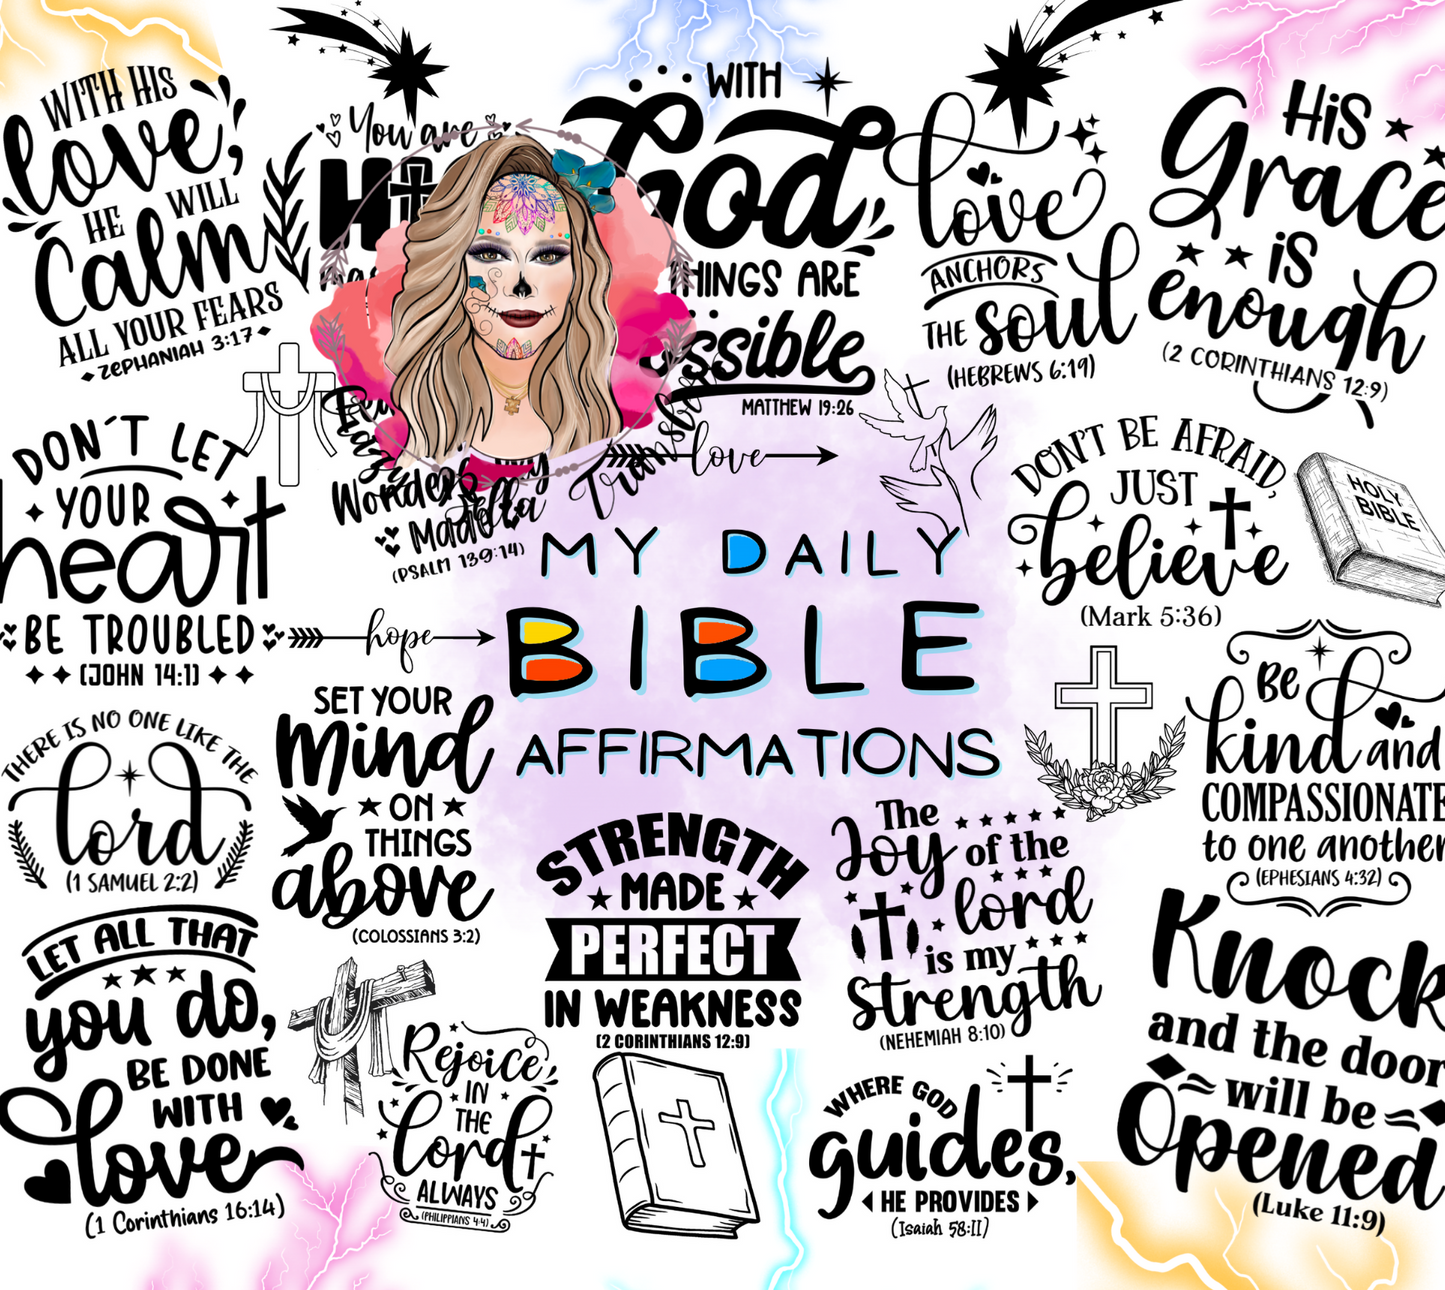 WITH HIS
love,
HE WILL
Calm
ALL YOUR FEARS
ZEPHANIAH 3:17
You are
WITH
God
THINGS ARE
MATTHEW 19:26
love
ANCHORS
THE soul
(HEBREWS 6:19)
HiS
Grace
iS
enough
(2 CORINTHIANS 12:9)
DON'T LET
YOUR
heart
BE TROUBLED
(JOHN 14:1)
Made
(PSALM 139:14)
love
hope
MY DAILY
BIBLE
AFFIRMATIONS
DON'T BE AFRAID,
JUST
believe
(Mark 5:36)
HOLY
BIBLE
THERE IS NO ONE LIKE THE
lord
(1 SAMUEL 2:2)
SET YOUR
Mind
ON
THINGS
above
(COLOSSIANS 3:2)
STRENGTH
MADE
PERFECT
IN WEAKNESS
(2 CORINTHIANS 12:9)
The
Joy of the
lord
is my
Strength
(NEHEMIAH 8:10)
Be
kind and
COMPASSIONATE
to one another
(EPHESIANS 4:32)
LET ALL THAT
you do,
BE DONE
WITH
love
(1 Corinthians 16:14)
Rejoice
IN
THE
Lord
ALWAYS
(PHILIPPIANS 4:4)
WHERE GOD
guides,
HE PROVIDES
(Isaiah 58:11)
Knock
and the door
will be
Opened
(Luke 11:9)